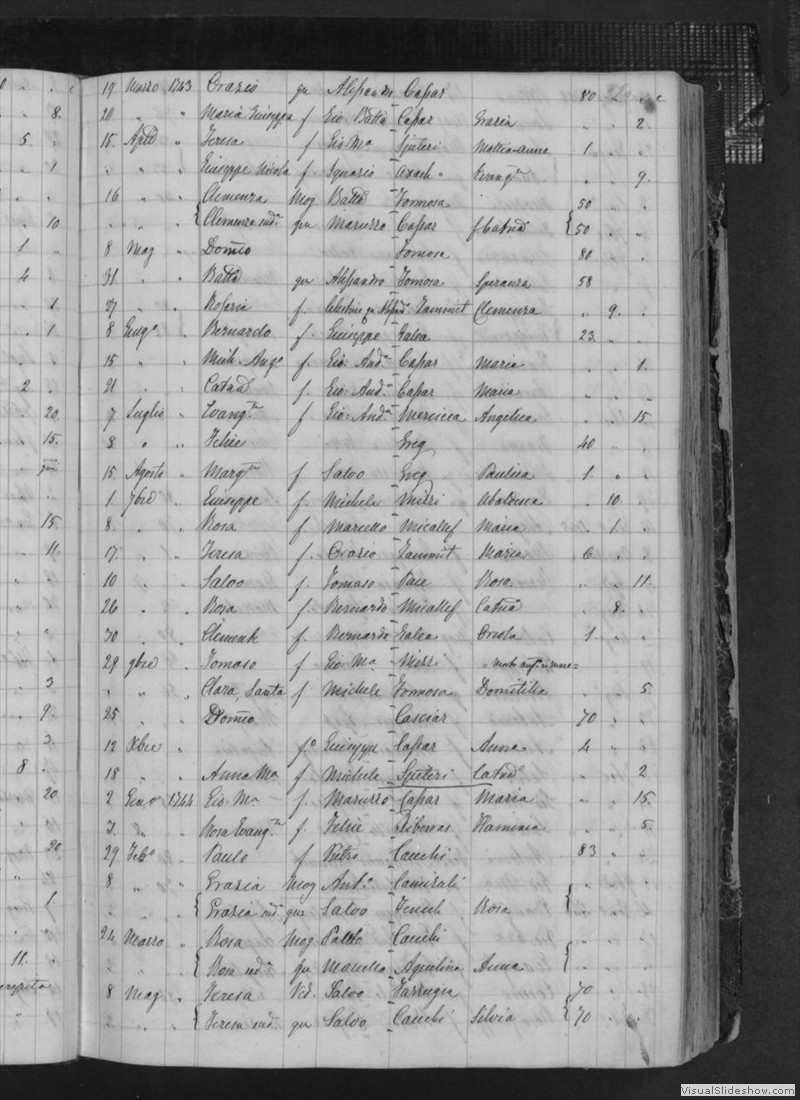 19 Marzo 1743 Orazio qu Alessandro Caȷar 80 " "
20 " " Maria Giuseppa f Gio Batta Caȷar Grazia " " 2.
15. Aple " Teresa f Gio Ma Sȷuteri Mattia-Anna 1 " "
" " " Giuseppe Nicola f Ignazio Axach " Evangta " " 9.
16 " " Clemenza Mog Batta Formosa 50 " "
" " { Clemenza sudta qu Maruzzo Caȷar f Catna { 50 " "
8 Mag " Domco Formosa 80 " "
31 " " Batta qu Alessandro Fomosa Speranza 58
27 " " Rosaria f. Celestino qu Alessdo Zammit Clemenza " 9. "
8 Giugo " Bernardo f. Giuseppe Galea 23. " "
15 " " Mich. Ango f. Gio: Anda Caȷar Maria " " 1.
21 " " Catna f. Gio: Anda Caȷar Maria " " "
7 Luglio " Evangta f Gio: Anda Mercieca Angelica " " 15
8 " " Felice Greg 40 " "
15 Agosto " Margta f Salvo Greg Paulica 1 " "
1 7bre " Giuseppe f Michele Mizzi Ubaldesca " 10. "
8. " " Rosa f Marcello Micallef Maria " 1. "
17. " " Teresa f. Orazio Zammit Maria 6 " "
10 " " Salvo f. Tomaso Pace Rosa " " 11.
26 " " Rosa f. Bernardo Micallef Catna " 8. "
30 " " Clemente f. Bernarda Galea Orsola 1 " "
29 9bre " Tomaso f Gio: Ma Mizzi
" " " Clara, Santa f Michele Formosa Domitilla " " 5.
25 " " Domco Casciar 70 " "
12 Xbre " fo Giuseppe Caȷar Anna 4 " "
18 " " Anna Ma f Michele Sȷuteri Catna " " 2
2 Geno 1744 Gio: Ma f. Maruzzo Caȷar Maria " " 15.
3 " " Rosa Evangta f. Felice Flaminia " " 5.
29 Febo " Paulo f Pietro Cauchi 83 " "
8 " " Grazia Mog Anto Camisuli
" " { Grazia sudta qu Salvo Fenech Rosa {
24 Marzo " Rosa Mog Paolo Cauchi
" " { Rosa sudta qu Marcello Aquilina Anna {
8 Mag " Teresa Ved. Salvo Farrugia 70 " "
" " { Teresa sudta qu Salvo Cauchi Silvia { 70 " "
VisualSlideshow.com